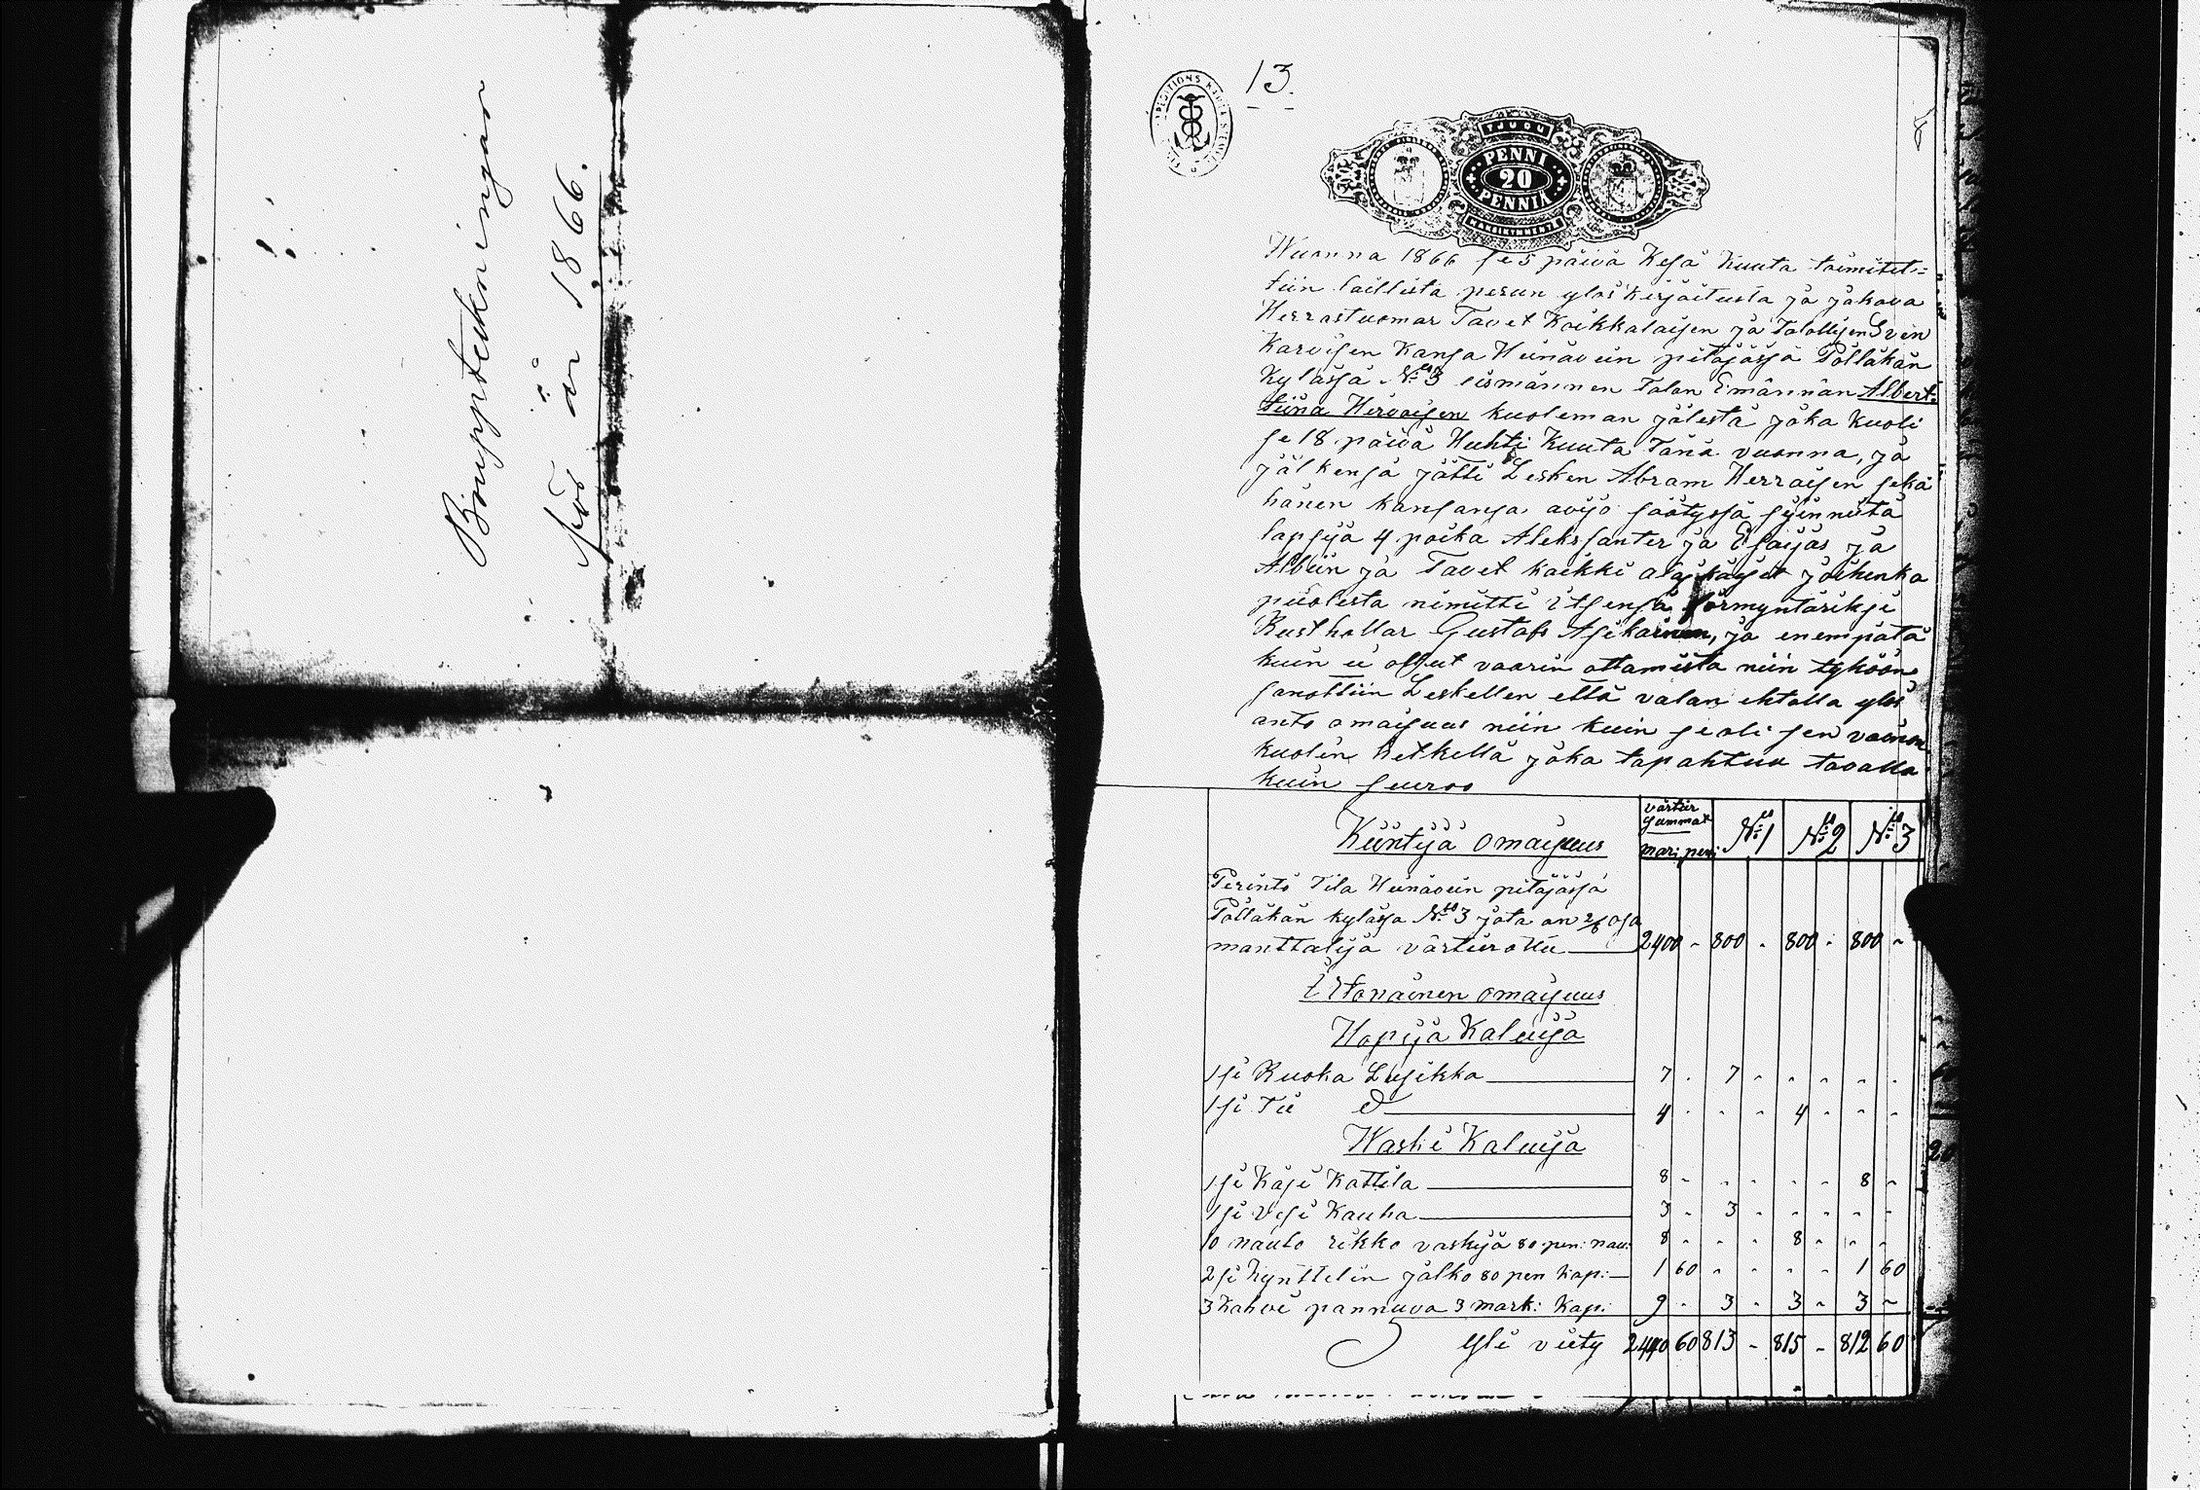 Bouppteckningar
för år 1866.
13.
TJUGU
PENNI
20
PENNIÄ
Wuonna 1866 se 5 päivä Kesä Kuuta toimitet-
tiin laillista perun ylös kirjoitusta ja jakava
Herrastuomar Tavet Koikkalaisen ja Talollisen Sven
Karvisen kansa Heinävein pitäjässä Pölläkän
Kylässä No 3 Talan Emännän Albert-
tiina Hirvoisen kuoleman jälestä joka kuoli
se 18 päivä Huhti Kuuta Tänä vuonna, ja
jälkensä jätti Lesken Abram Herraisen sekä
hänen kansansa avijo säätyssä syinneitä
lapsija 4 poika Aleksanter ja Esaijas ja
Albin ja Tavet kaikki alajkäjset joihenka
puolesta nimitti itsensä förmyntäriksi
Rusthollar Gustafs, ja enempätä
kuin ei ollut vaarin ottamista niin tyköön
sanottiin Leskellen että valan ehtolla ylös
anto omaisuus niin kuin se oli sen vainon
kuolin hetkellä joka tapahtuu tavalla
kuin seuroo
Kiintijä omaisuus
värtiir
summat
mar: pen:
No 1
No 2
No 3
Perintö Tila Heinävein pitäjässä
Pölläkän kylässa No 3 jota on osa
manttalija värtiirattu 2400 - 800 - 800 - 800 -
Irtonainen omaisuus
Hopija Kaluija
1 si Ruoka Lusikka 7 - 7 - - - - -
1 si Tee d 4 - - - 4 - - -
Waski Kaluija
1 si Käsi Kattila 8 - - - - - 8 -
1 si Vesi Kauha 3 - 3 - - - - -
10 naulo rikko vaskija 80 pen: nau: 8 - - - 8 - - -
2 si kynttelin jalko 80 pen kap: 1 60 - - - - 1 60
3 Kahvi pannuva 3 mark: Kap: 9 - 3 - 3 - 3 -
Yli viety 2440 60 813 - 815 - 812 60